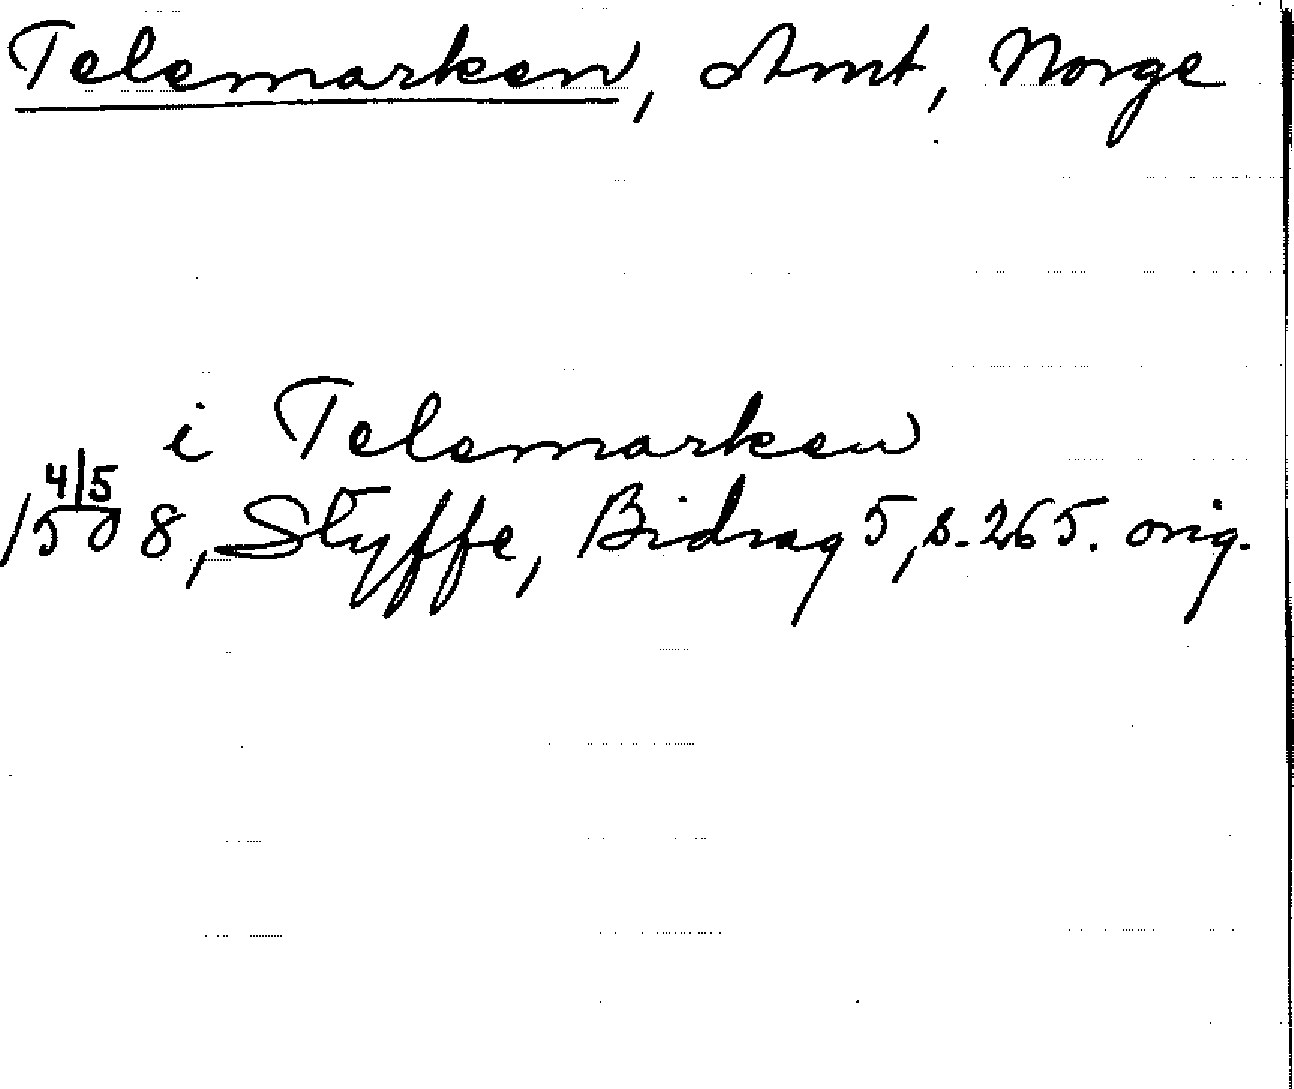 Telemarken, Amt, Norge
i Telemarken
4/5
1508, Styffe, Bidrag 5, s. 265. orig.